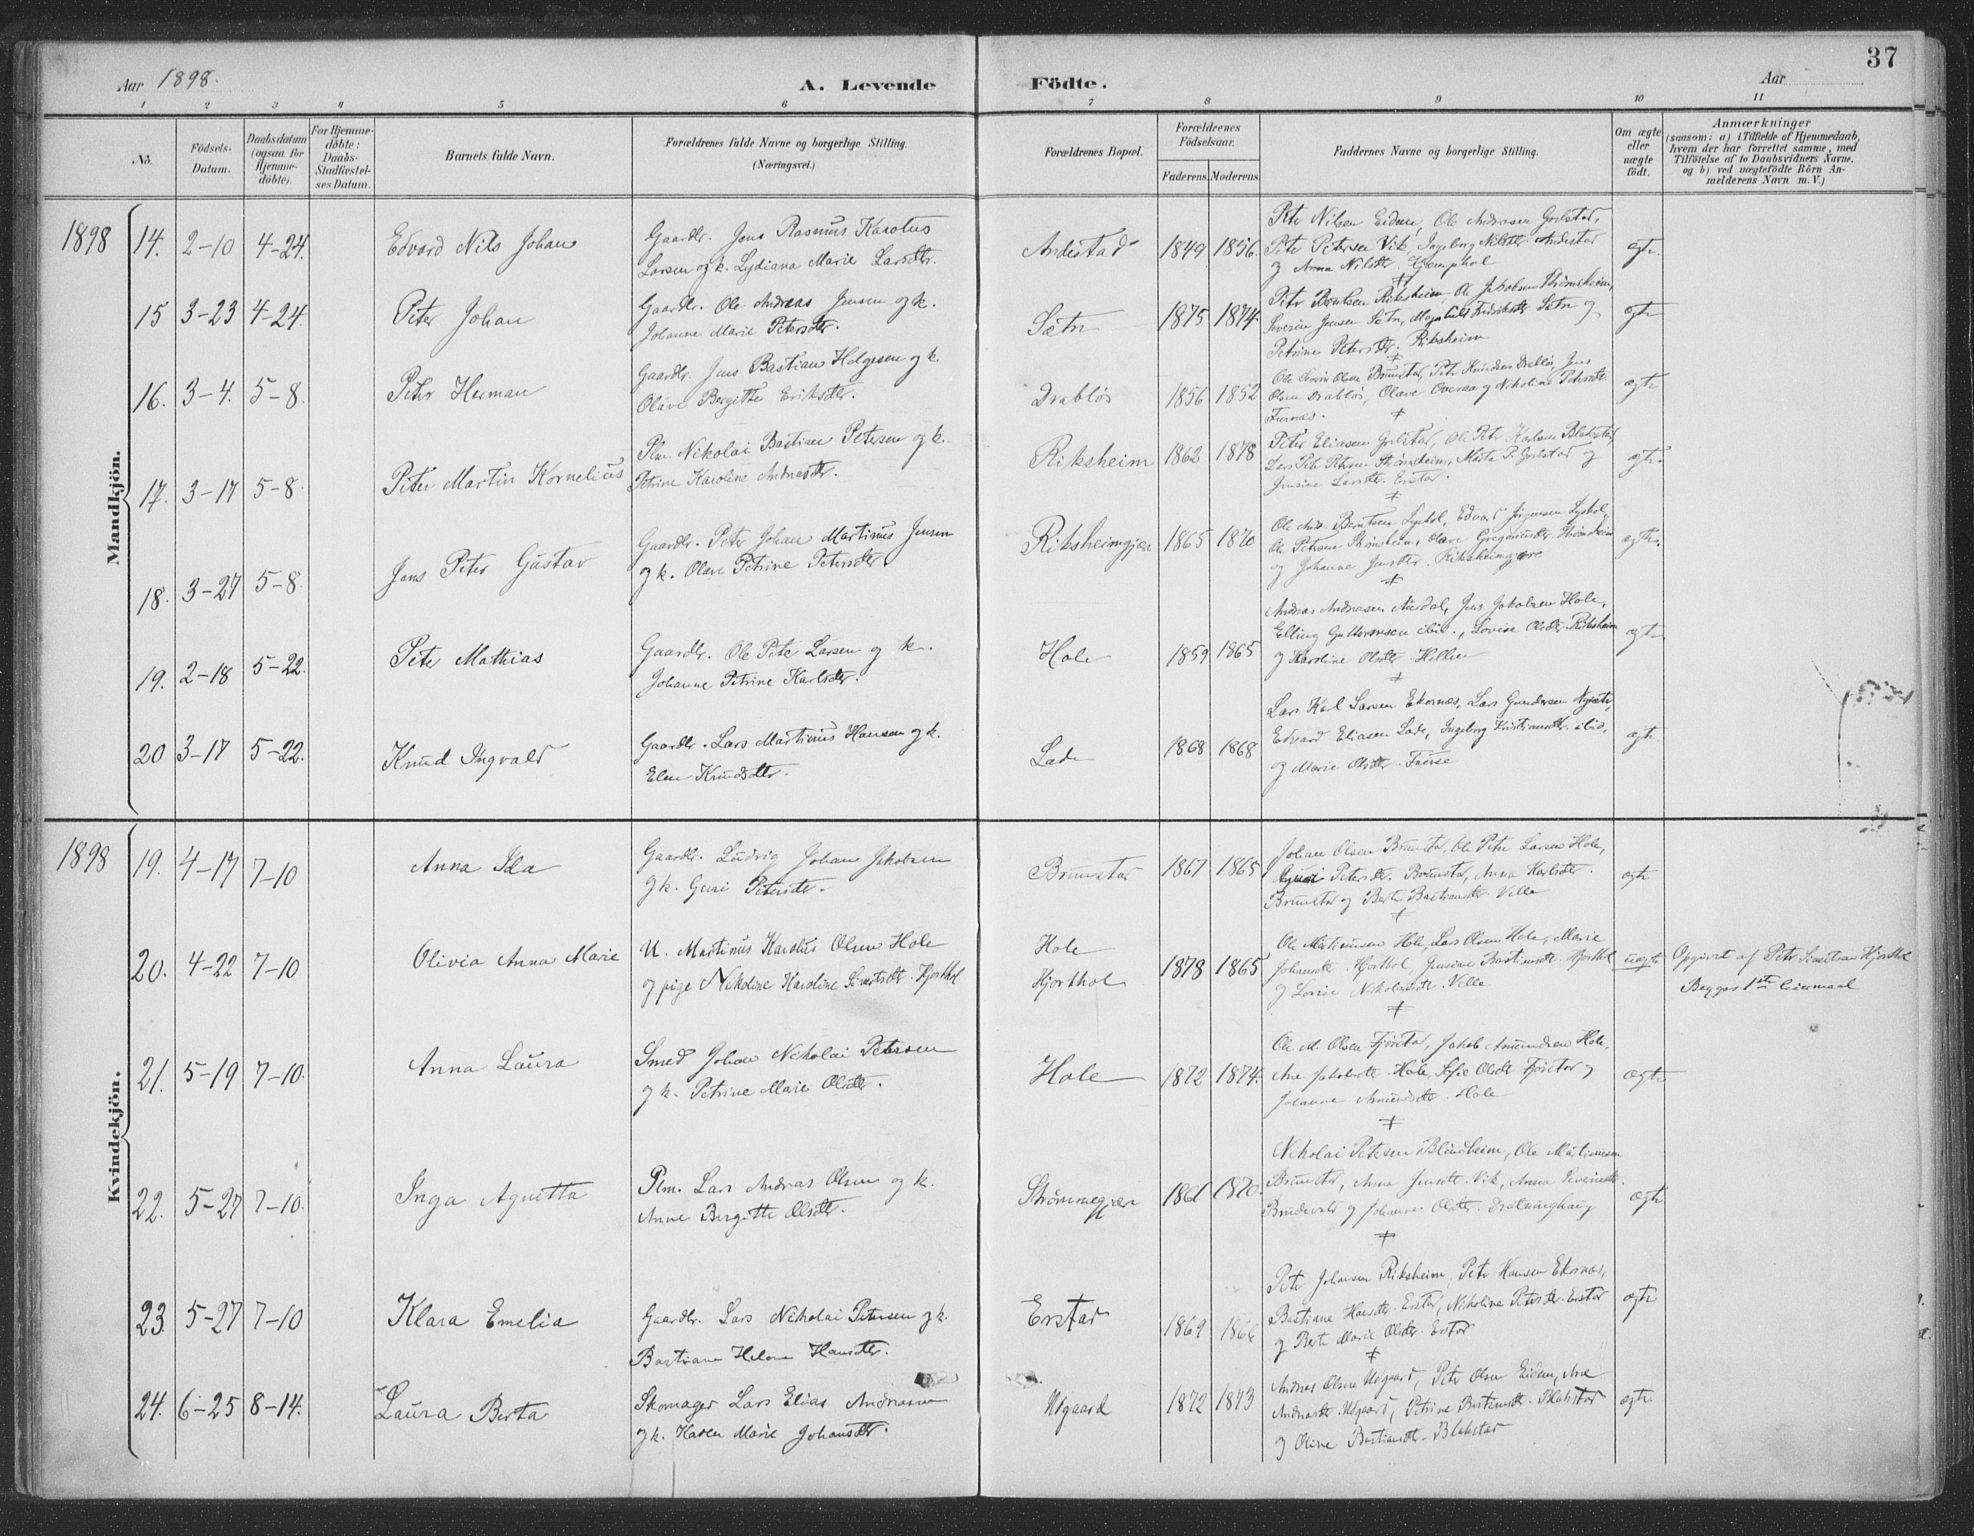 37
Aar 1898. A. Levende Födte. Aar
1 2 3 4 5 6 7 8 9 10 11
No. Födsels-Datum. Daabsdatum (ogsaa for Hjemme-döbte). For Hjemme-döbte: Daabs-Stadfæstel-ses Datum. Barnets fulde Navn. Forældrenes fulde Navne og borgerlige Stilling. (Næringsvei.) Forældrenes Bopæl. Forældrenes Födselsaar. Faderens. Moderens. Faddernes Navne og borgerlige Stilling. Om ægte eller uægte födt. Anmærkninger (saasom: a) i Tilfælde af Hjemmedaab, hvem der har forrettet samme, med Tilföielse af to Daabsvidners Navne, og b) ved uægtefödte Börn An-melderens Navn m. V.)
Mandkjön.
1898 14. 2-10 4-24. Edvard Nils Johan Gaardbr. Jens Rasmus Karolus
Larsen og k. Lydiana Marie Larsdtr. Andestad 1849 1856. ægte
Petr Nilsen Eidem, Ole Andreasen Gjelstad,
Petr Petersen Vik, Ingeborg Nilsdtr. Andestad
og Anna Nilsdtr. Hjemphol
15 3-23 4-24. Peter Johan Gaardbr. Ole Andreas Jensen og k.
Johanne Marie Petersdtr. Sætn 1875 1874. ægte
Petr Berntsen Riksheim, Ole Jakobsen Strømsheim,
Severin Jensen Sætn, Magnhild Fredriksdtr Sætn og
Petrine Petersdtr. Riksheim
16. 3-4. 5-8. Petr Herman Gaardbr. Jens Bastian Helgesen og k.
Olave Bergitte Eriksdtr. Drabløs 1856 1852 ægte
Olsen Drabløs, Olave Overaa og Nikoline Petersdtr.
Furnæs.
17. 3-17 5-8. Peter Martin Kornelius Plm. Nikolai Bastian Petersen og k.
Petrine Karoline Andreasdtr. Riksheim 1862 1878 ægte.
Peter Eliasen Gjelstad, Ole Petr Karlsen Blakstad,
Lars Petr Petersen Strømsheim, Marta P. Gjelstad og
Jensine Larsdtr. Erstad.
18. 3-27 5-8. Jens Peter Gustav Gaardbr. Peter Johan Martinus Jensen
og k. Olave Petrine Petersdtr. Riksheimgjær 1865 1870 ægte.
Ole Petersen Strømsheim, Olave Gregoriusdtr Strømsheim
og Johanne Jensdtr. Riksheimgjære
19. 2-18 5-22. Petr Mathias Gaardbr. Ole Petr Larsen og k.
Johanne Petrine Karlsdtr. Hole 1859 1865 ægte
Andreas Andreasen Aurdal, Jens Jakobsen Hole,
Elling Guttormsen ibid., Lovise Olsdtr. Riksheim
og Karoline Olsdtr. Hellen
20 3-17 5-22. Knud Ingvald Gaardbr. Lars Martinus Hansen og k.
Elen Knudsdtr. Lade 1868 1868 ægte
Lars Karl Larsen Ekornæs, Lars Gundersen Nysæte,
Edvard Eliasen Lade, Ingeborg Kristiansdtr. ibid,
og Marie Olsdtr.
Kvindekjön.
1898 19. 4-17 7-10 Anna Ida Gaardbr. Ludvig Johan Jakobsen
og k. Guri Petersdtr. Brunstad 1867 1865 ægte
Johan Olsen Brunstad, Ole Petr Larsen Hole,
Guri Petersdtr. Brunstad, Anna Karlsdtr.
Brunstad og Berte Bastiansdtr. Velle
20. 4-22 7-10 Olivia Anna Marie U. Martinus Karolus Olsen Hole
og pige Nikoline Karoline Sivertsdtr Hjorthol Hole
Hjorthol 1878 1865 uægte
Ole Martinussen Hole, Lars Olsen Hole, Marie
Johansdtr. Hjorthol, Jensine Bastiansdtr. Hjorthol
og Lovise Nikolaisdtr. Velle
Opgivet af Petr Sivertsen Hjorthol
Begges 1ste Leiermaal
21. 5-19 7-10. Anna Laura Smed Johan Nikolai Petersen
og k. Petrine Marie Olsdtr. Hole 1872 1874. ægte
Ole M. Olsen Fjørstad, Jakob Amundsen Hole,
Ane Jakobsdtr. Hole, Sofie Olsdtr Fjørstad og
Johanne Amundsdtr. Hole
22. 5-27 7-10. Inga Agnetta Plm. Lars Andreas Olsen og k.
Anne Bergitte Olsdtr. Strømmegjære 1861 1870. ægte
Nikolai Petersen Blindheim, Ole Martinussen
Brunstad, Anna Jensdtr. Vik, Anna Severinsdtr.
Brudevold og Johanne Olsdtr. Dratunghaug
23. 5-27 7-10 Klara Emelia Gaardbr. Lars Nikolai Petersen og k.
Bastiane Helene Hansdtr. Erstad 1869 1866 ægte
Petr Johansen Riksheim, Petr Hansen Ekornæs,
Bastiane Hansdtr. Erstad, Nikoline Petersdtr. Erstad
og Berte Marie Olsdtr. Erstad
24. 6-25 8-14. Laura Berta Skomager Lars Elias Andreasen
og k. Karen Marie Johansdtr. Uggaard 1872 1873 ægte.
Andreas Olsen Uggaard, Peter Olsen Eidem, Ane
Andreasdtr. Uggaard, Petrine Bastiansdtr. Blakstad
og Oline Bastiansdtr. Blakstad